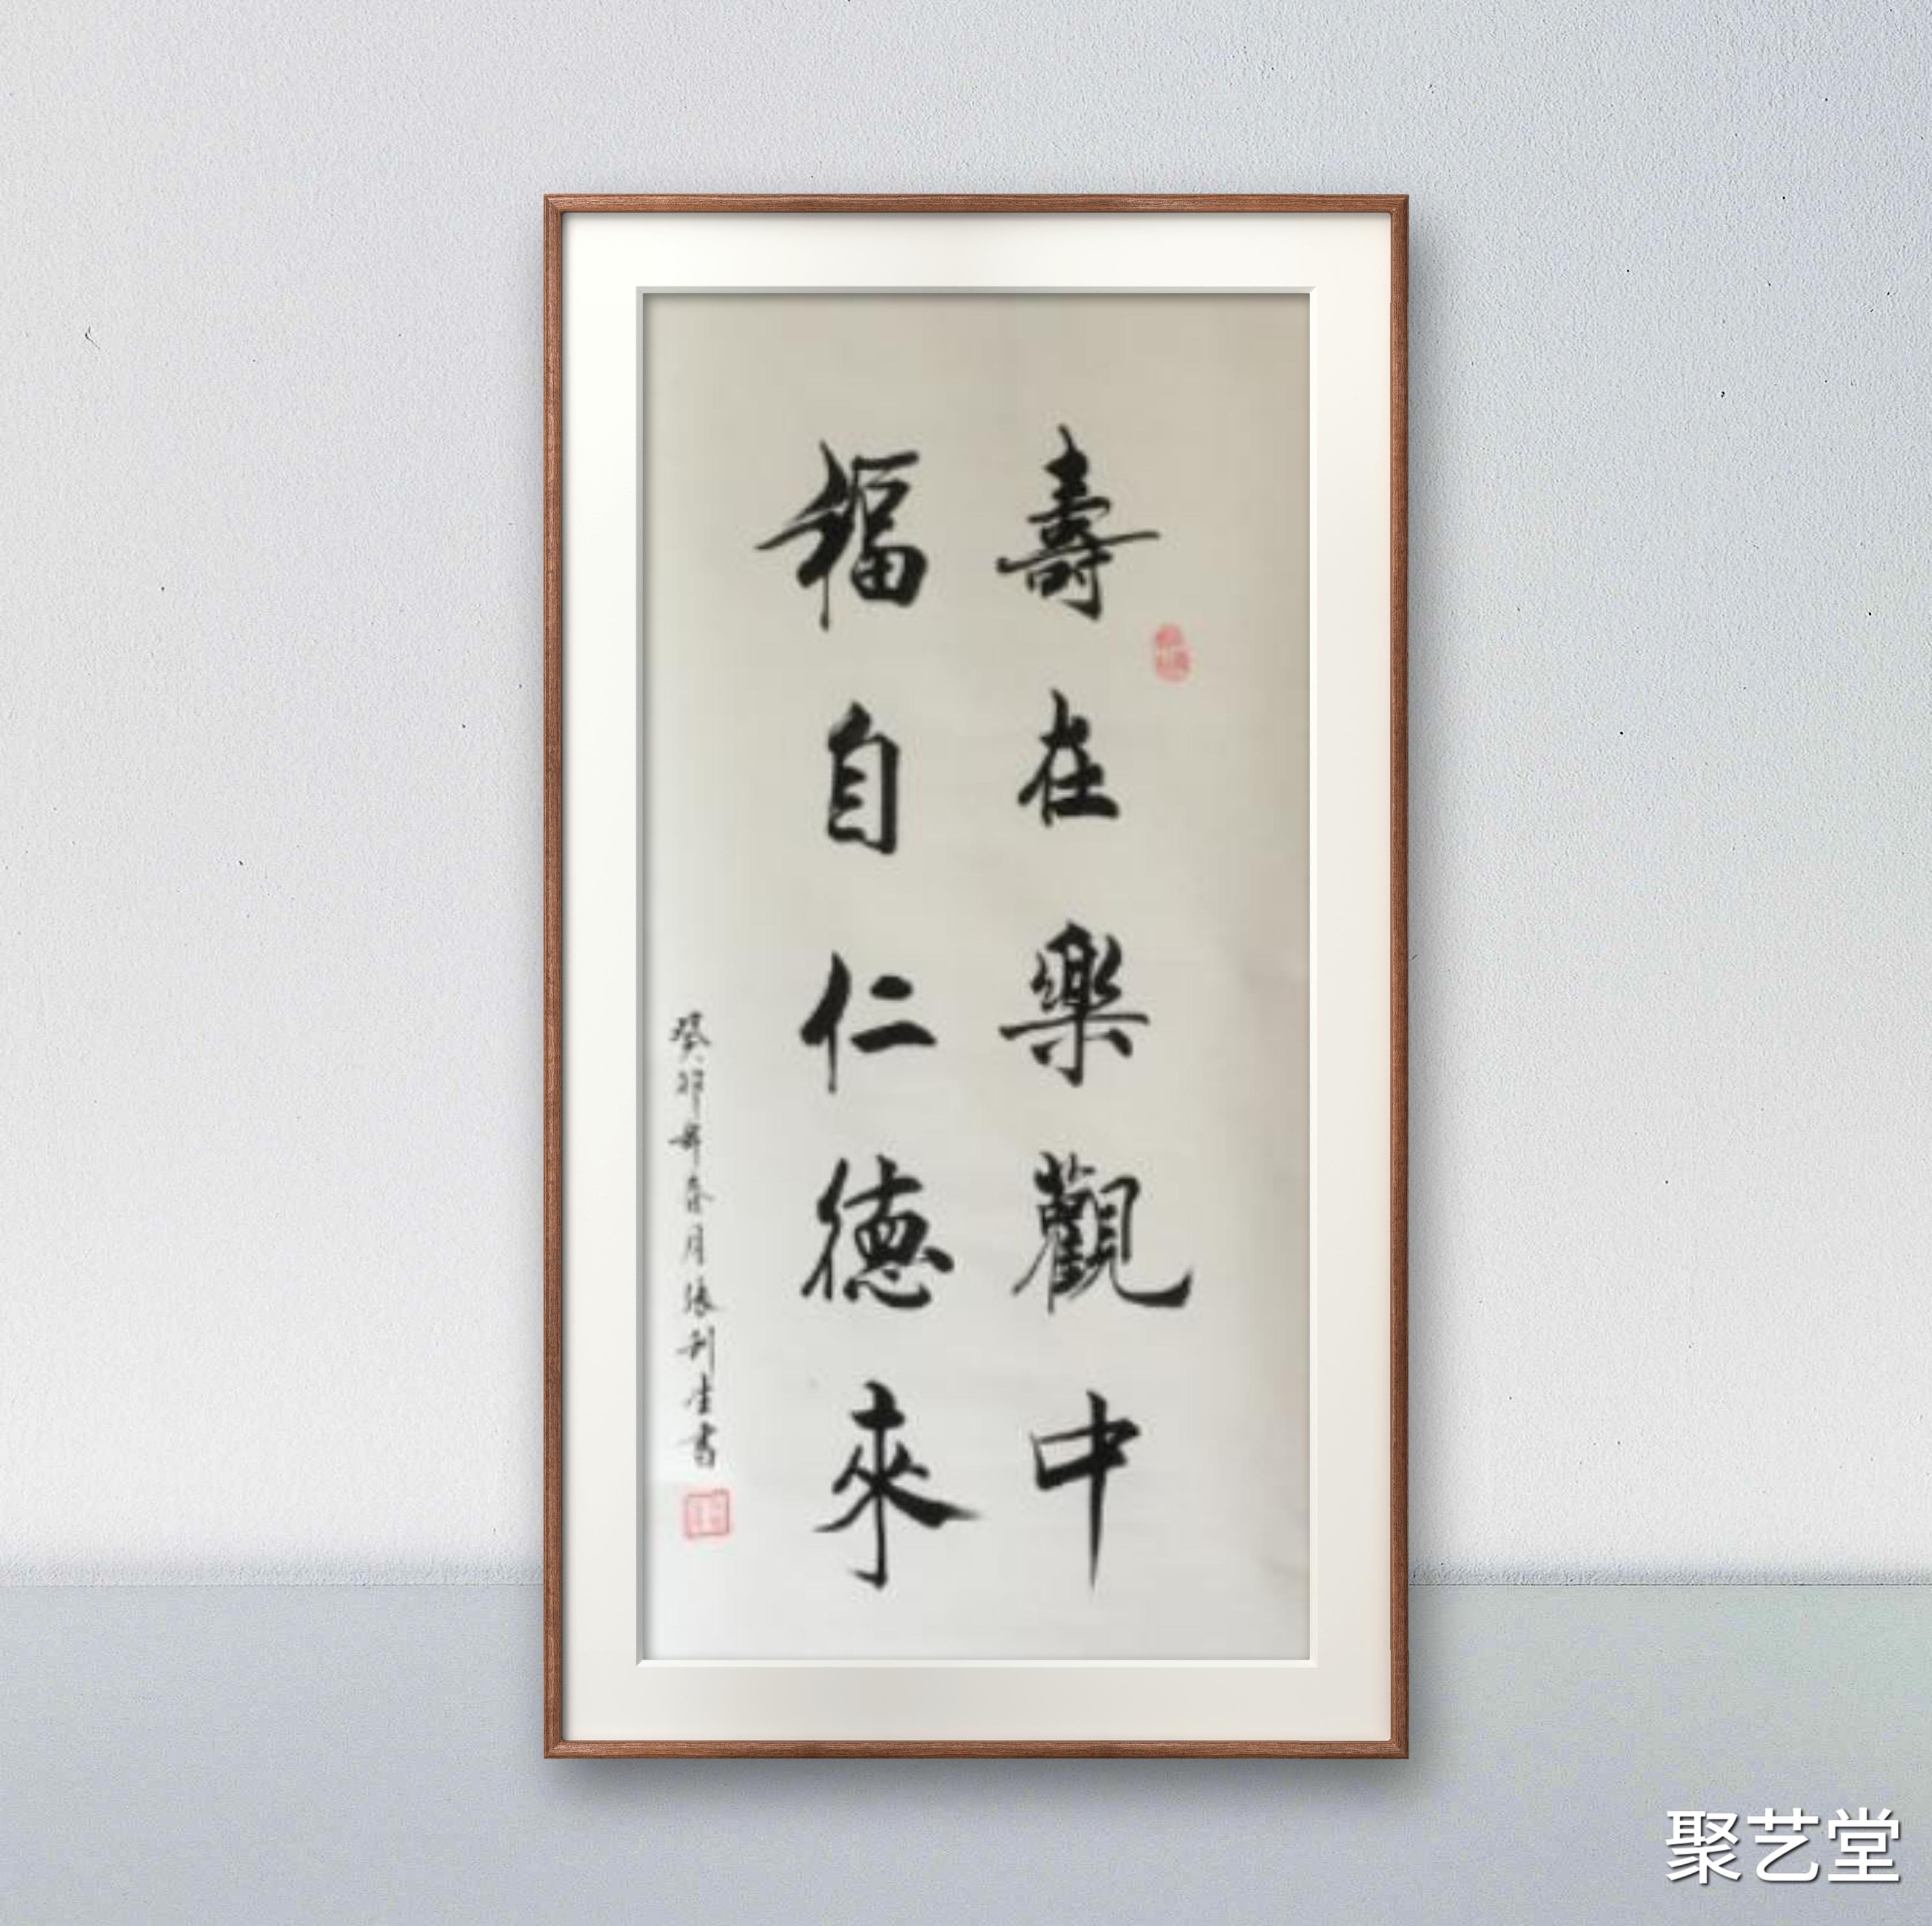 壽在樂觀中
福自仁德來
癸卯年春月張利生書
聚艺堂